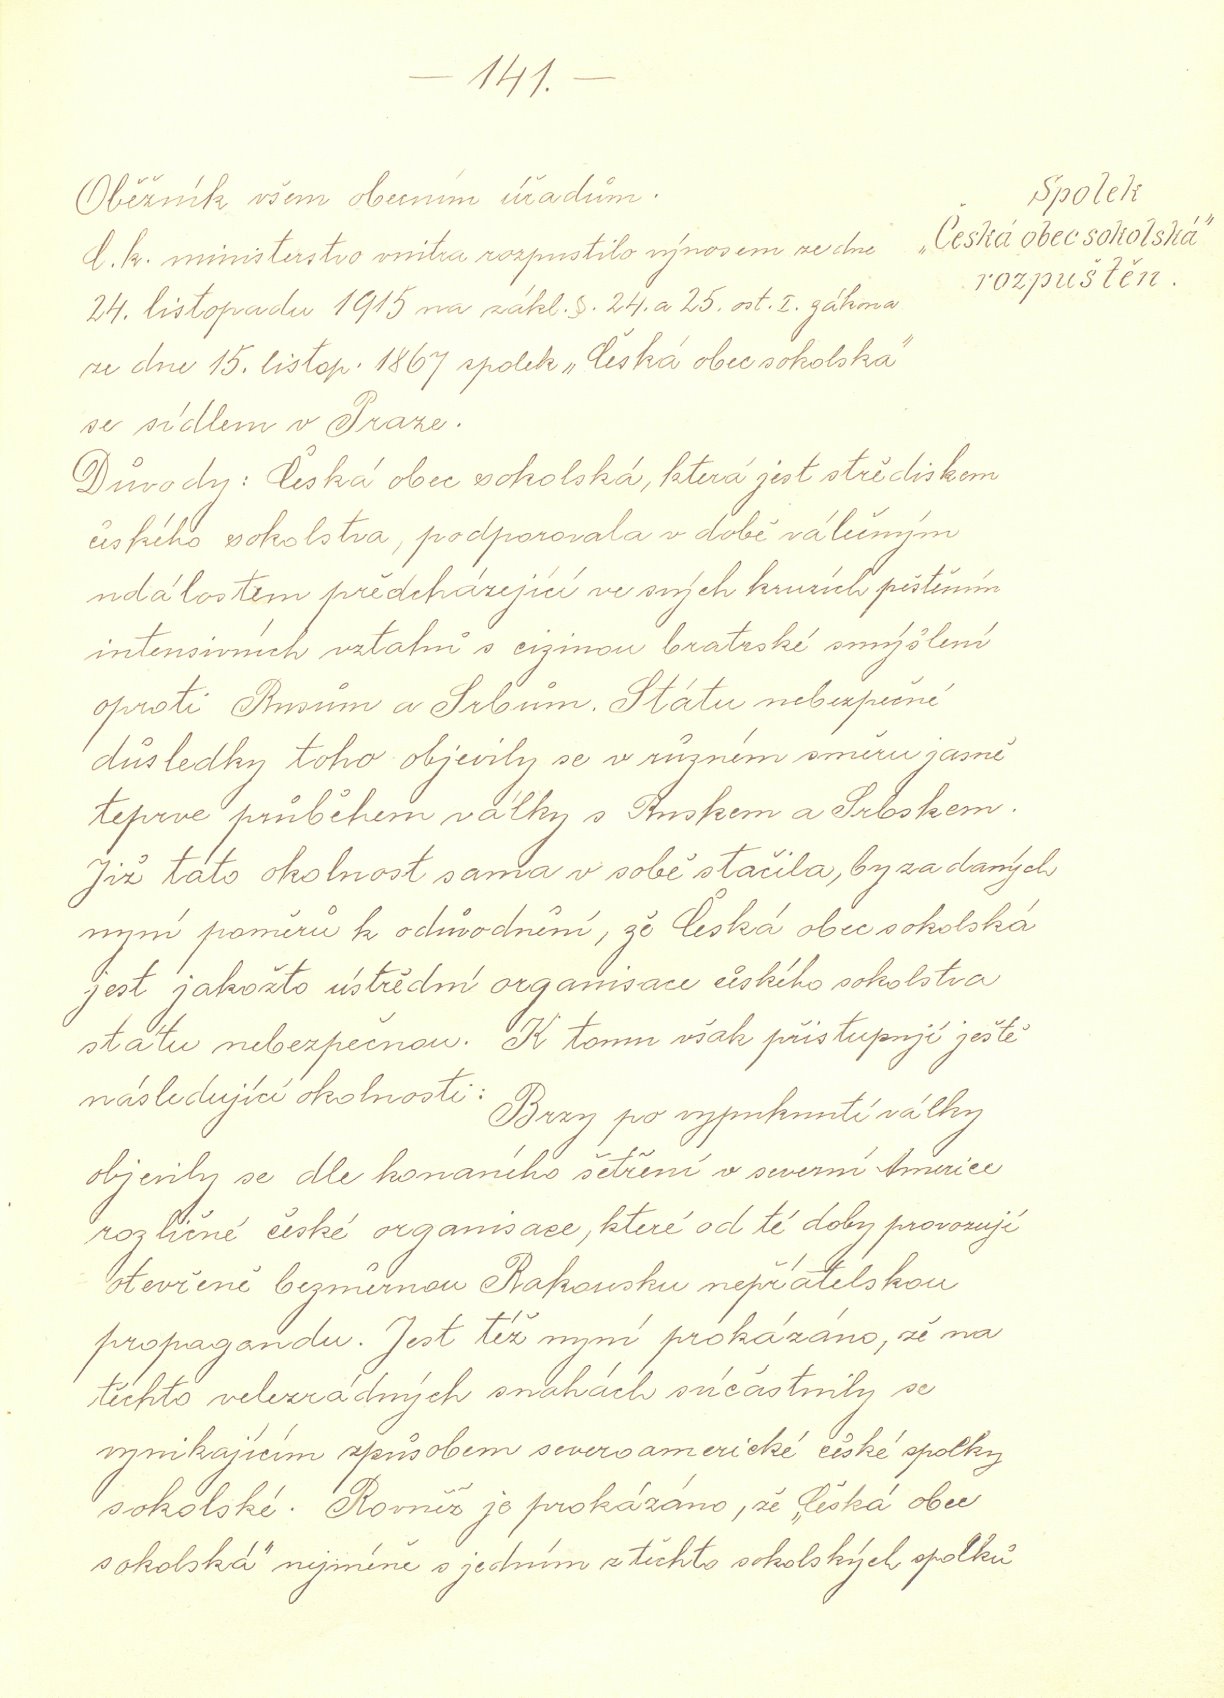 — 141. —
Spolek
„Česká obec sokolská"
rozpuštěn.
Oběžník všem obecním úřadům.
C. k. ministerstvo vnitra rozpustilo výnosem ze dne
24. listopadu 1915 na zákl. §. 24. a 25. ost. I. zákona
ze dne 15. listop. 1867 spolek „Česká obec sokolská"
se sídlem v Praze.
Důvody: Česká obec sokolská, která jest střediskem
českého sokolstva, podporovala v době válečným
událostem předcházející ve svých kruzích pěstěním
intensivních vztahů s cizinou bratrské smýšlení
oproti Rusům a Srbům. Státu nebezpečné
důsledky toho objevily se v různém směru jasně
teprve průběhem války s Ruskem a Srbskem.
Již tato okolnost sama v sobě stačila, by za daných
nyní poměrů k odůvodnění, že Česká obec sokolská
jest jakožto ústřední organisace českého sokolstva
státu nebezpečnou. K tomu však přistupují ještě
následující okolnosti: Brzy po vypuknutí války
objevily se dle konaného šetření v severní Americe
rozličné české organisace, které od té doby provozují
otevřeně bezměrnou Rakousku nepřátelskou
propagandu. Jest též nyní prokázáno, že na
těchto velezrádných snahách súčastnily se
vynikajícím způsobem severoamerické české spolky
sokolské. Rovněž je prokázáno, že „Česká obec
sokolská" nejméně s jedním z těchto sokolských spolků